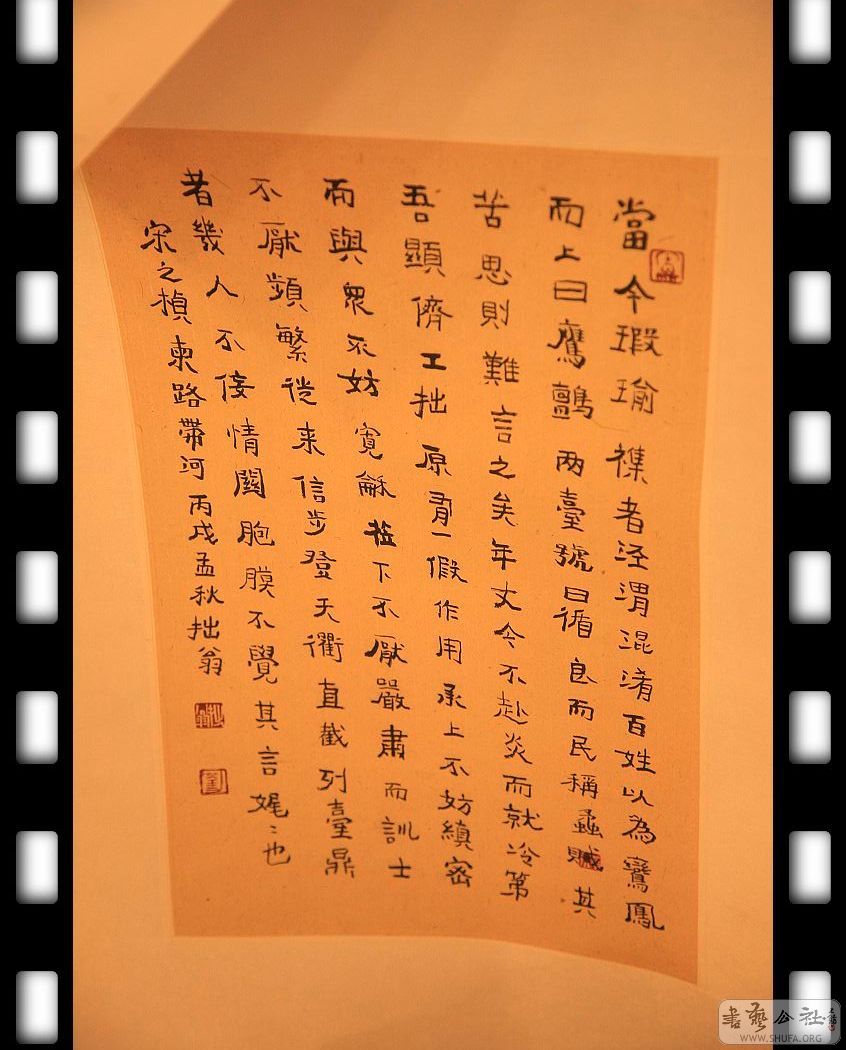 當今瑕瑜襍者涇渭混淆百姓以為鸞鳳
而上曰鷹鸇兩臺號曰循良而民稱蟊賊其
苦思則難言之矣年丈今不赴炎而就冷第
吾顯儕工拙原有一假作用承上不妨縝密
而與眾不妨寬龢蒞下不厭嚴肅而訓士
不厭頻繁從來信步登天衢直截列臺鼎
者幾人不佞情關胞膜不覺其言娓〻也
宋之楨柬路帶河丙戌孟秋拙翁
書藝公社
WWW.SHUFA.ORG